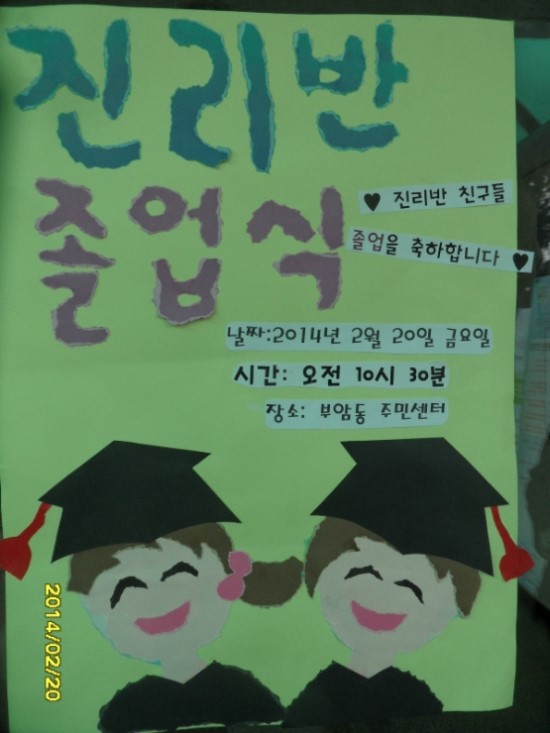 진리반
졸업식
♥ 진리반 친구들
졸업을 축하합니다 ♥
날짜:2014년 2월 20일 금요일
시간: 오전 10시 30분
장소: 부암동 주민센터
2014/02/20